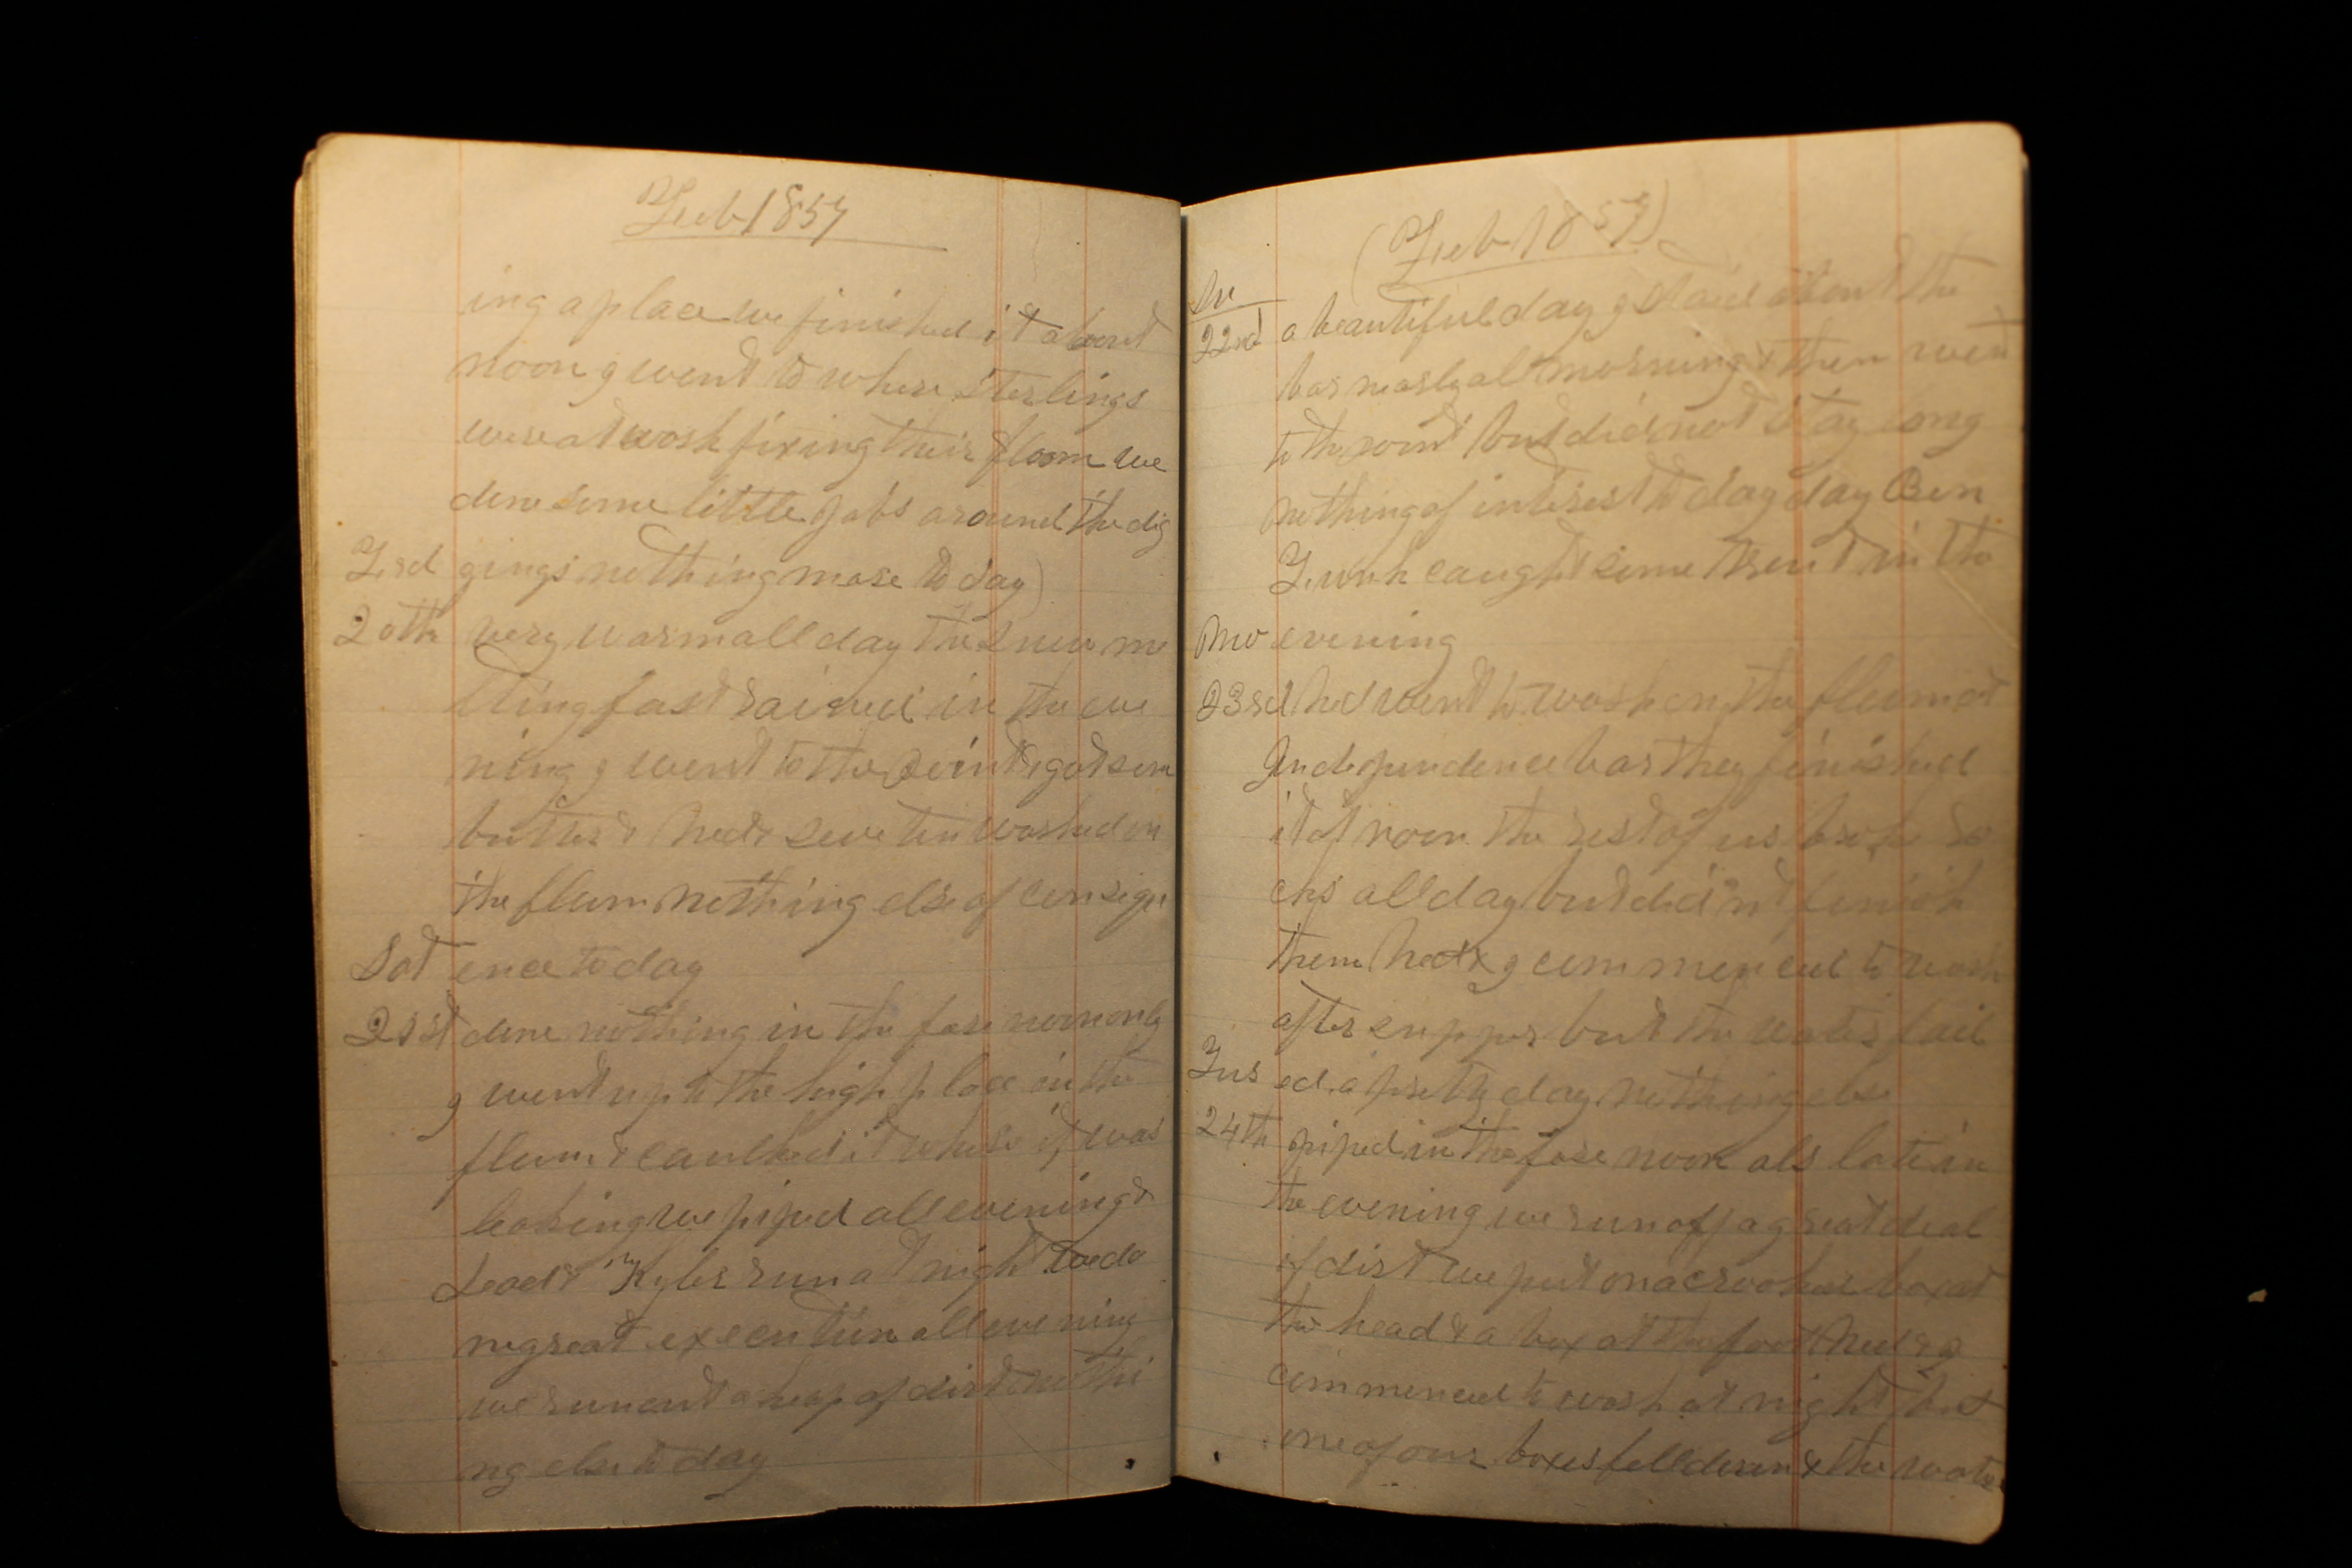 Feb 1857
ing a place we finished it about
noon I went to where Sterlings
were at work fixing their floom we
done some little jobs around the dig
Frd gings nothing more to day)
20th very warm all day the snow me
lting fast rained in the eve
ning I went to the point & got som
butter & Ned & worked on
the flum nothing else of consiqu
Sat ence to day
21st done nothing in the fore noon only
I went up to the high place in the
flum & caulked it where it was
leaking we piped all evening &
Lead & Kyler run at night we do
ne great execution all evening
we run out a heap of dirt nothi
ng else to day
(Feb 1857)
Su
22nd a beautiful day I staid about the
bar nearly all morning & then went
to the point but did not stay long
nothing of interest to day day Ben
Funk caught some trout in the
Mo evening
23rd Ned went to work on the flum at
Independence bar they finished
it at noon the rest of us broke ro
cks all day but did nt finish
them Ned & I commenced to wash
after supper but the water fail
Tus ed a pretty day nothing else
24th piped in the fore noon als late in
the evening we run off a great deal
of dirt we put on a crooked box at
the head & a box at the foot Ned & I
commenced to wash at night but
one of our boxes fell down & the water